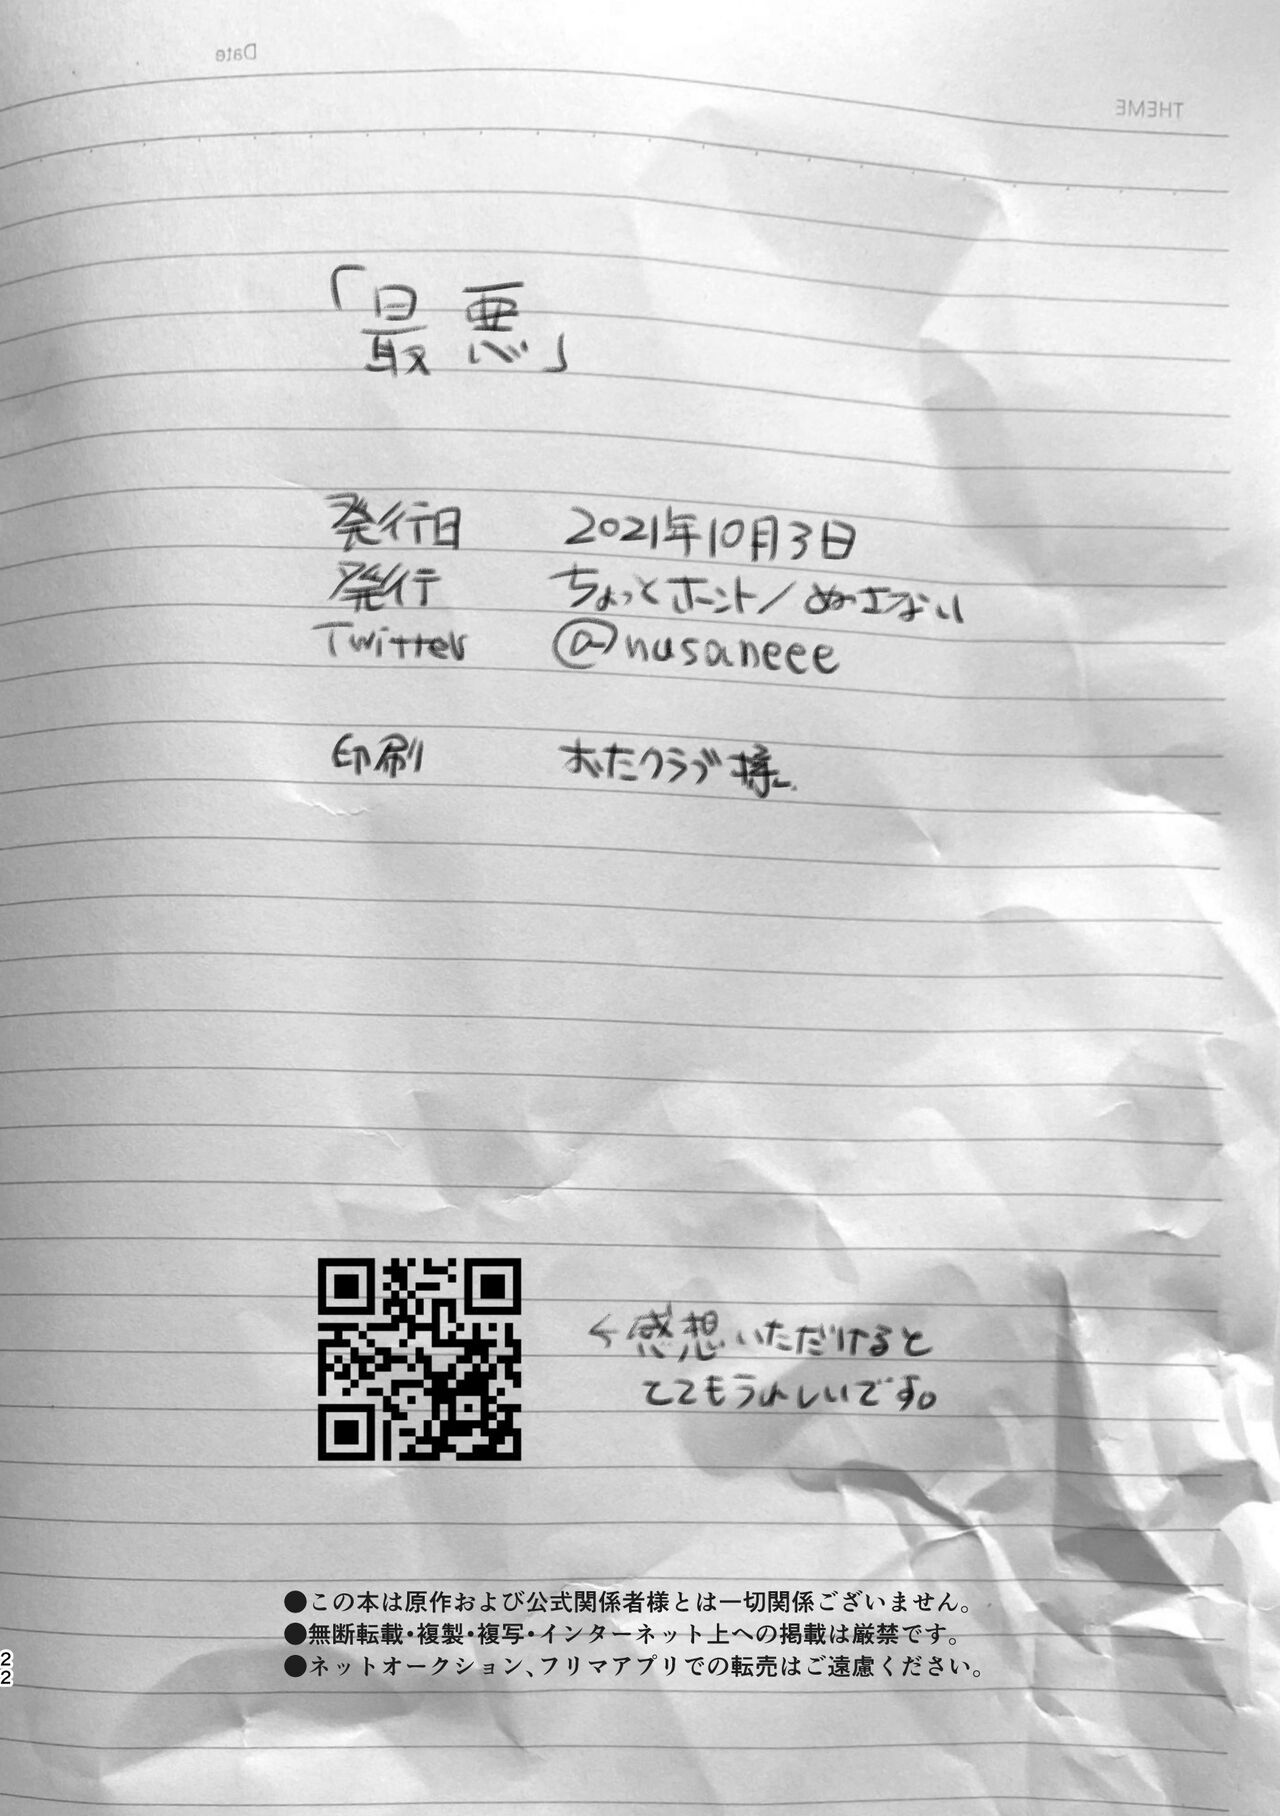 Date
THEME
「最悪」
発行日 2021年10月3日
発行 ちょっとホント/ぬさない
Twitter @nusaneee
印刷 おたクラブ様
←感想いただけると
とてもうれしいです。
●この本は原作および公式関係者様とは一切関係ございません。
●無断転載・複製・複写・インターネット上への掲載は厳禁です。
●ネットオークション、フリマアプリでの転売はご遠慮ください。
22